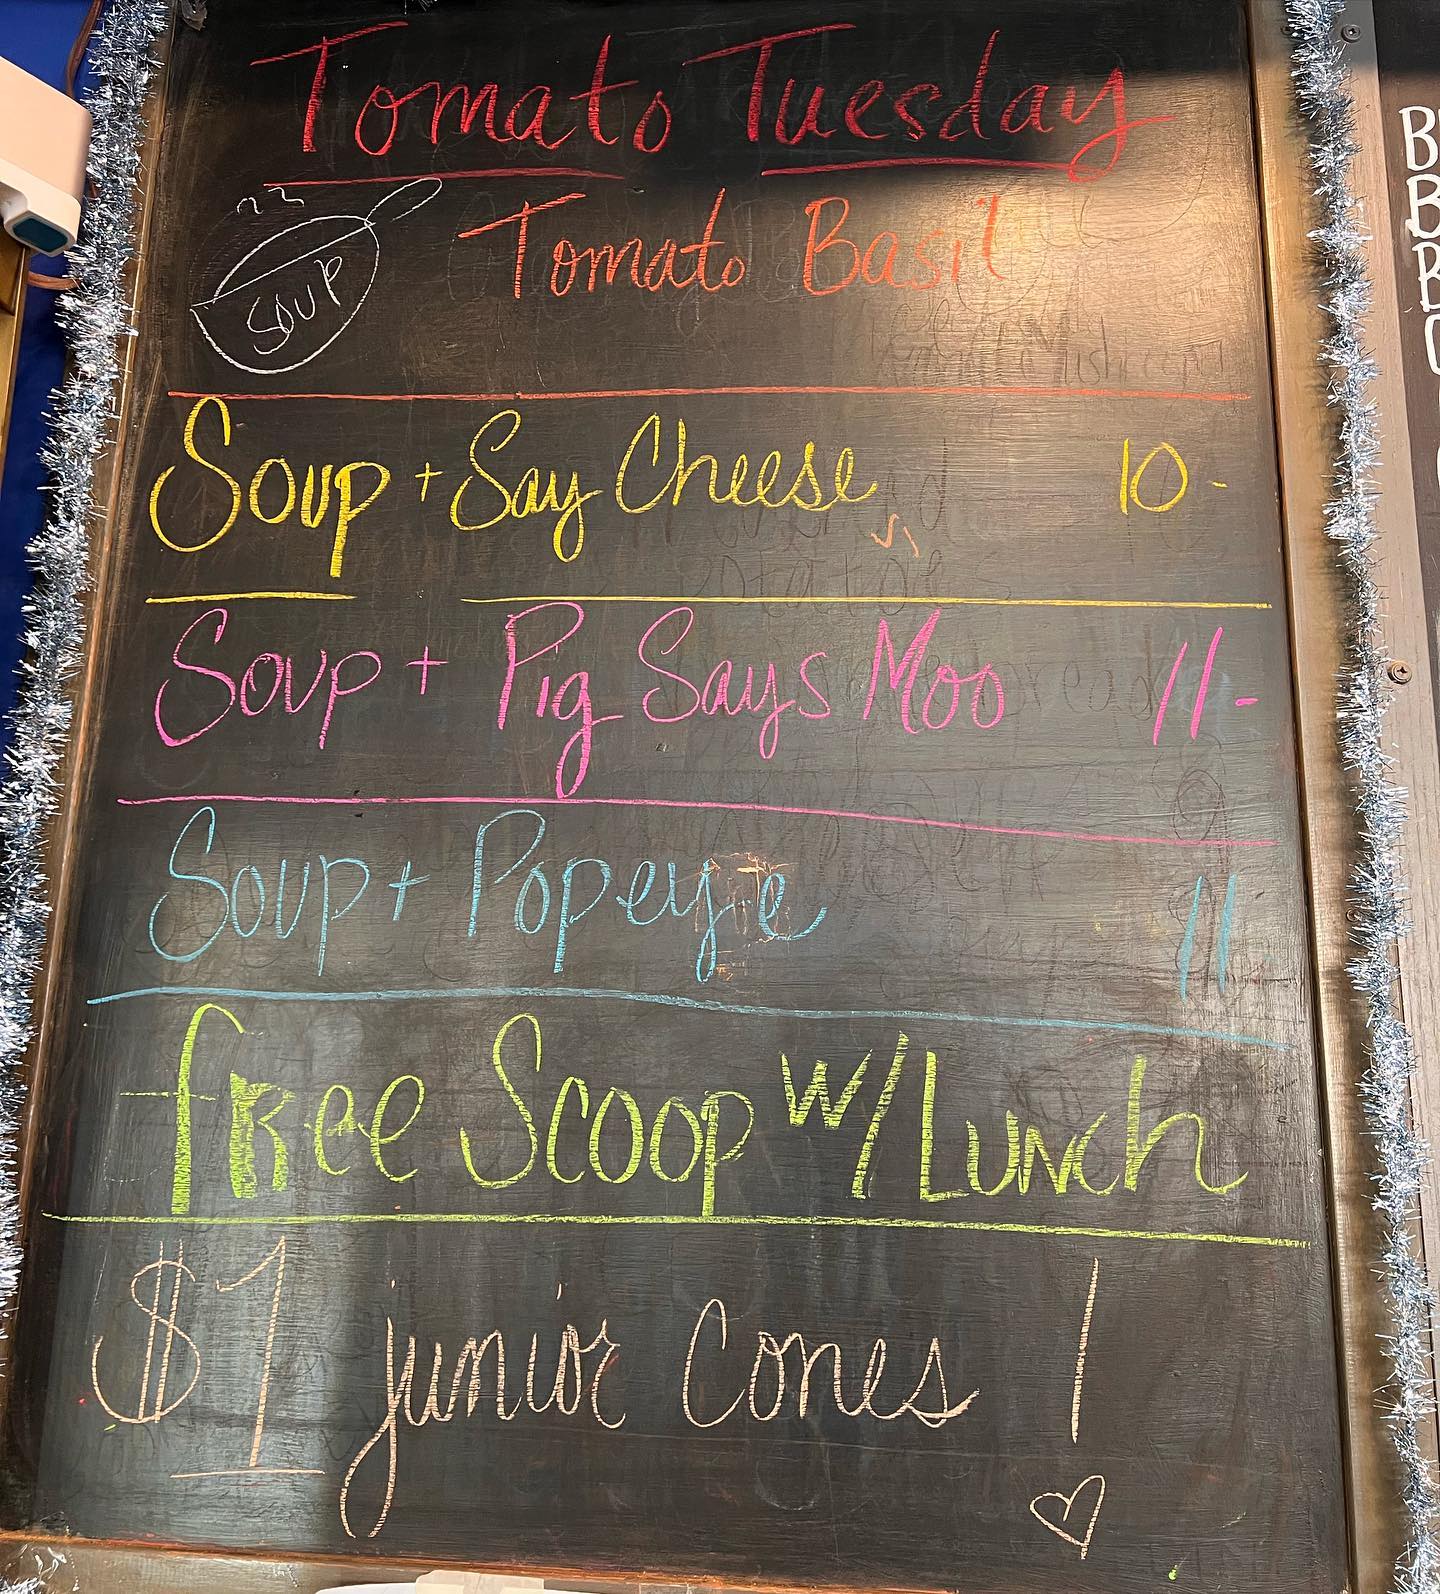 Tomato Tuesday
Soup
Tomato Basil
Soup + Say Cheese 10-
Soup + Pig Says Moo 11-
Soup + Popeye 11
free Scoop w/ Lunch
$1 junior Cones !